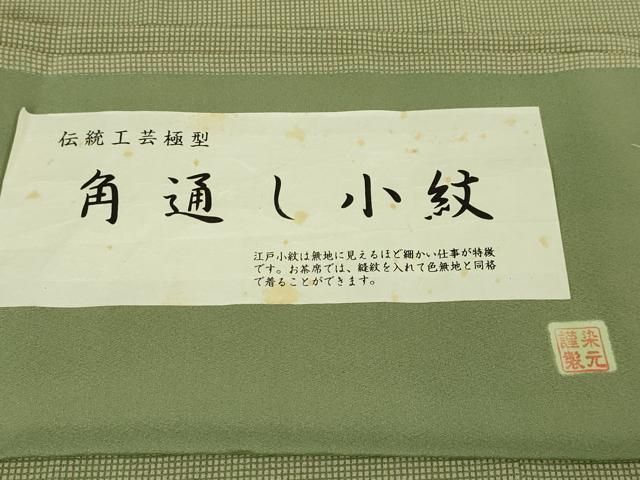 伝統工芸極型
角通し小紋
江戸小紋は無地に見えるほど細かい仕事が特徴
です。お茶席では、縫紋を入れて色無地と同格
で着ることができます。
染元
謹製